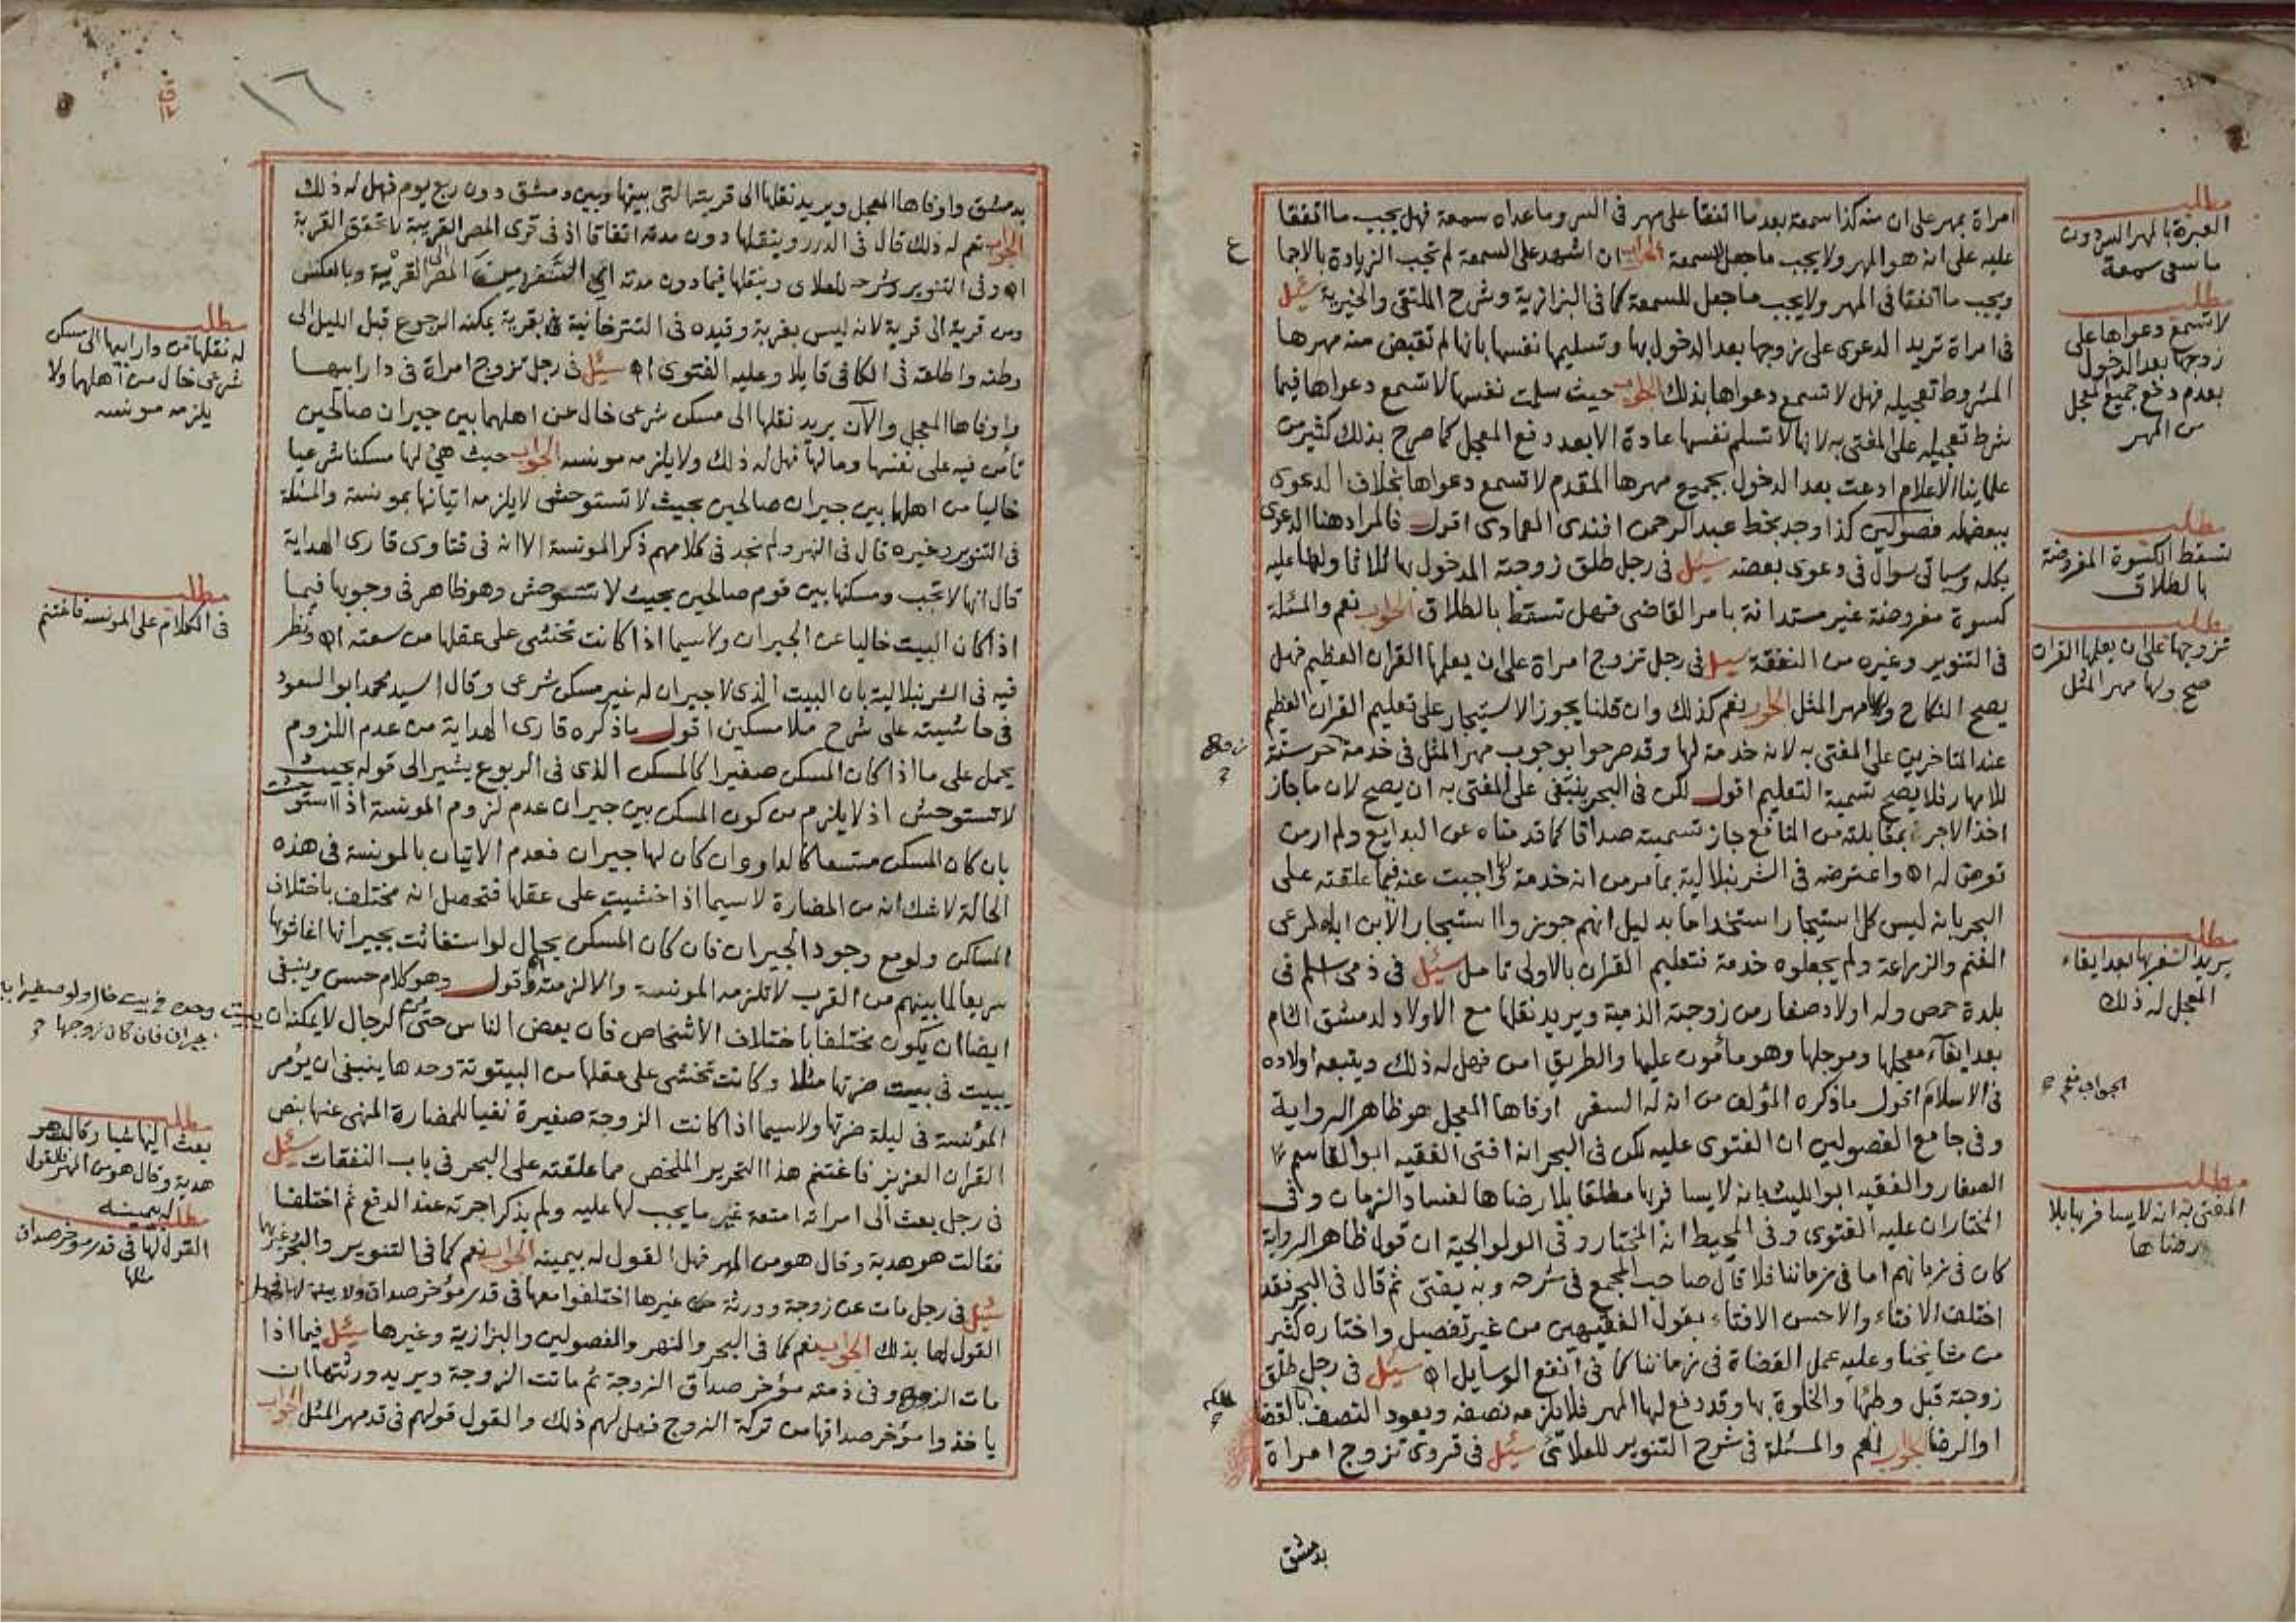 امراة بمهر على ان منه كذا سمعة بعد ما اتفقا على مهر فى السر وما عداه سمعة فهل يجب ما اتفقا
عليه على انه هو المهر ولا يجب ما جعل للسمعة الجواب ان اشهد على السمعة لم تجب الزيادة بالاجما
ويجب ما اتفقا فى المهر ولا يجب ما جعل للسمعة كما فى البزازية وشرح الملتقى والخيرية سئل
فى امراة تريد الدعوى على زوجها بعد الدخول بها وتسليمها نفسها بانها لم تقبض منه مهرها
المشروط تعجيله فهل لا تسمع دعواها بذلك الجواب حيث سلمت نفسها لا تسمع دعواها فيما
شرط تعجيله على المفتى به لانها لا تسلم نفسها عادة الا بعد دفع المعجل كما صرح بذلك كثير من
علماينا الاعلام ادعت بعد الدخول بجميع مهرها المقدم لا تسمع دعواها بخلاف الدعوى
ببعضه فصولين كذا وجد بخط عبد الرحمن افندى العمادى اقول فالمراد هنا الدعوى
بكله وسياتى سوال فى دعوى بعضه سئل فى رجل طلق زوجته المدخول بها ثلاثا ولها عليه
كسوة مفروضة غير مستدانة بامر القاضى فهل تسقط بالطلاق الجواب نعم والمسئلة
فى التنوير وغيره من النفقة سئل فى رجل تزوج امراة على ان يعلمها القران العظيم فهل
يصح النكاح ولها مهر المثل الجواب نعم كذلك وان قلنا يجوز الاستيجار على تعليم القران العظيم
عند المتاخرين على المفتى به لانه خدمة لها وقد صرحوا بوجوب مهر المثل فى خدمة حر سنة
للامهار فلا يصح تسمية التعليم اقول لكن فى البحر ينبغى على المفتى به ان يصح لان ما جاز
اخذ الاجر بمقابلته من المنافع جاز تسميته صداقا كما قدمناه عن البدايع ولم ار من
تعرض له اه واعترضه فى الشرنبلالية بما مر من انه خدمة لها اجبت عنه فيما علقته على
البحر بانه ليس كل استيجار استخداما بدليل انهم جوزوا استيجار الابن اباه لرعى
الغنم والزراعة ولم يجعلوه خدمة فتعليم القران بالاولى تامل سئل فى ذمى اسلم فى
بلدة حمص وله اولاد صغار من زوجته الذمية ويريد نقلها مع الاولاد لدمشق الشام
بعد ايفاء معجلها وموجلها وهو مأمون عليها والطريق امن فهل له ذلك ويتبعه اولاده
فى الاسلام اقول ما ذكره المؤلف من ان له السفر اوفاها المعجل هو ظاهر الرواية
وفى جامع الفصولين ان الفتوى عليه لكن فى البحر انه افتى الفقيه ابو القاسم
الصفار والفقيه ابو الليث بانه لا يسافر بها مطلقا بلا رضاها لفساد الزمان وفى
المختار ان عليه الفتوى وفى المحيط انه المختار وفى الولوالجية ان قول ظاهر الرواية
كان فى زمانهم اما فى زماننا فلا قال صاحب المجمع فى شرحه وبه يفتى ثم قال فى البحر فقد
اختلف الافتاء والاحسن الافتاء بقول الفقيهين من غير تفصيل واختاره كثير
من مشايخنا وعليه عمل القضاة فى زماننا كما فى انفع الوسايل اه سئل فى رجل طلق
زوجته قبل وطئها والخلوة بها وقد دفع لها المهر فلا تلزمه نصفه ويعود النصف بالقضا
او الرضا الجواب نعم والمسئلة فى شرح التنوير للعلائى سئل فى قروى تزوج امراة
بدمشق
مطلب
العبرة بالمهر السر دون
ما سمى سمعة
مطلب
لا تسمع دعواها على
زوجها بعد الدخول
بعدم دفع جميع المعجل
من المهر
مطلب
تسقط الكسوة المفروضة
بالطلاق
مطلب
تزوجها على ان يعلمها القران
صح ولها مهر المثل
مطلب
يريد السفر بها بعد ايفاء
المعجل له ذلك
الجواب نعم
مطلب
المفتى به انه لا يسافر بها بلا
رضاها
١٦
بدمشق واوفاها المعجل ويريد نقلها الى قريته التى بينها وبين دمشق دون ربع يوم فهل له ذلك
الجواب نعم له ذلك قال فى الدرر وينقلها دون مدته اتفاقا اذ فى قرى المصر القريبة لا تتحقق الغربة
اه وفى التنوير وشرحه للعلاى وينقلها فيما دون مدته اى السفر من المصر الى القرية وبالعكس
ومن قرية الى قرية لانه ليس بغربة وقيده فى التترخانية بقرية يمكنه الرجوع قبل الليل الى
وطنه واطلقه فى الكافى قايلا وعليه الفتوى اه سئل فى رجل تزوج امراة فى دار ابيها
واوفاها المعجل والآن يريد نقلها الى مسكن شرعى خال عن اهلهما بين جيران صالحين
تأمن فيه على نفسها ومالها فهل له ذلك ولا يلزمه مونسه الجواب حيث هئ لها مسكنا شرعيا
خاليا من اهلهما بين جيران صالحين بحيث لا تستوحش لا يلزمه اتيانها بمونسة والمسئلة
فى التنوير وغيره قال فى النهر ولم نجد فى كلامهم ذكر المونسة الا انه فى فتاوى قارى الهداية
قال انها لا تجب ومسكنها بين قوم صالحين بحيث لا تستوحش وهو ظاهر فى وجوبها فيما
اذا كان البيت خاليا عن الجيران ولاسيما اذا كانت تخشى على عقلها من سعته اه ونظر
فيه فى الشرنبلالية بان البيت الذى لا جيران له غير مسكن شرعى وقال السيد محمد ابو السعود
فى حاشيته على شرح ملا مسكين اقول ما ذكره قارى الهداية من عدم اللزوم
يحمل على ما اذا كان المسكن صغيرا كالمسكن الذى فى الربوع يشير الى قوله بحيث
لا تستوحش اذ لا يلزم من كون المسكن بين جيران عدم لزوم المونسة اذا استوحشت
بان كان المسكن متسعا كالدار وان كان لها جيران فعدم الاتيان بالمونسة فى هذه
الحالة لا شك انه من المضارة لاسيما اذا خشيت على عقلها فتحصل انه مختلف باختلاف
المساكن ولو مع وجود الجيران فان كان المسكن بحال لو استغاثت بجيرانها اغاثوها
سريعا لما بينهم من القرب لا تلزمه المونسة والا لزمته واقول وهو كلام حسن وينبغى
ايضا ان يكون مختلفا باختلاف الاشخاص فان بعض الناس حتى من الرجال لا يمكنه ان
يبيت فى بيت ضرتها مثلا وكانت تخشى على عقلها من البيتوتة وحدها ينبغى ان يؤمر
المؤنسة فى ليلة ضرتها ولاسيما اذا كانت الزوجة صغيرة نفيا للمضارة المنهى عنها بنص
القران العزيز فاغتنم هذا التحرير الملخص مما علقته على البحر فى باب النفقات سئل
فى رجل بعث الى امراته امتعة غير ما يجب لها عليه ولم يذكر اجرته عند الدفع ثم اختلفا
فقالت هو هدية وقال هو من المهر فهل القول له بيمينه الجواب نعم كما فى التنوير والبحر وغيرها
سئل فى رجل مات عن زوجة وورثة غيرها اختلفوا معها فى قدر مؤخر صداق ولا بينة لها فهل
القول لها بذلك الجواب نعم كما فى البحر والنهر والفصولين والبزازية وغيرها سئل فيما اذا
مات الزوج وفى ذمته مؤخر صداق الزوجة ثم ماتت الزوجة ويريد ورثتها ان
ياخذوا مؤخر صداقها من تركة الزوج فهل لهم ذلك والقول قولهم فى قدر مهر المثل الجواب
مطلب
له نقلها من دار ابيها الى مسكن
شرعى خال من اهلهما ولا
يلزمه مونسه
مطلب
فى الكلام على المونسه فاغتنم
يبيت وحده فى بيت خال ولو صغيرا بين
جيران فان كان زوجها
مطلب
بعث اليها شيا وقالت هو
هدية وقال هو من المهر فالقول
له بيمينه
مطلب
القول لها فى قدر مؤخر صداق
مثلها